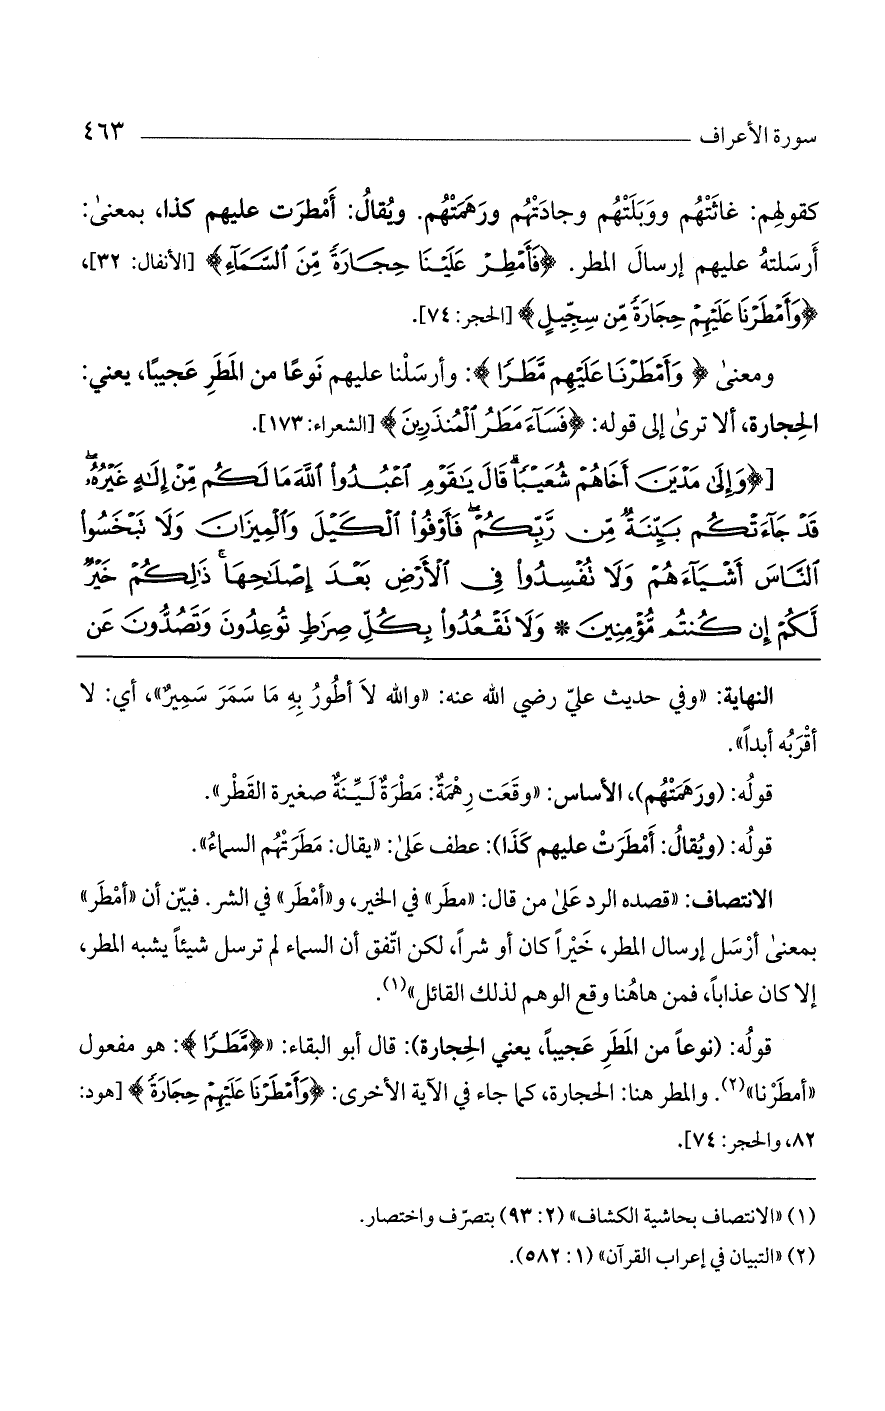 سورة الأعراف ٤٦٣
كقولهم: غاثَتْهُم ووَبَلَتْهُم وجادَتْهُم ورَهَمَتْهُم. ويُقالُ: أَمْطرَت عليهم كذا، بمعنىٰ:
أَرسَلتهُ عليهم إرسالَ المطر. ﴿فَأَمْطِرْ عَلَيْنَا حِجَارَةً مِّنَ ٱلسَّمَآءِ﴾ [الأنفال: ٣٢]،
﴿وَأَمْطَرْنَا عَلَيْهِمْ حِجَارَةً مِّن سِجِّيلٍ﴾ [الحجر: ٧٤].
ومعنىٰ ﴿وَأَمْطَرْنَا عَلَيْهِم مَّطَرًا﴾: وأرسَلْنا عليهم نَوعًا من المَطَرِ عَجيبًا، يعني:
الحِجارة، ألا ترىٰ إلى قوله: ﴿فَسَآءَ مَطَرُ ٱلْمُنذَرِينَ﴾ [الشعراء: ١٧٣].
[﴿وَإِلَىٰ مَدْيَنَ أَخَاهُمْ شُعَيْبًا ۗ قَالَ يَٰقَوْمِ ٱعْبُدُوا۟ ٱللَّهَ مَا لَكُم مِّنْ إِلَٰهٍ غَيْرُهُۥ ۖ
قَدْ جَآءَتْكُم بَيِّنَةٌ مِّن رَّبِّكُمْ ۖ فَأَوْفُوا۟ ٱلْكَيْلَ وَٱلْمِيزَانَ وَلَا تَبْخَسُوا۟
ٱلنَّاسَ أَشْيَآءَهُمْ وَلَا تُفْسِدُوا۟ فِى ٱلْأَرْضِ بَعْدَ إِصْلَٰحِهَا ۚ ذَٰلِكُمْ خَيْرٌ
لَّكُمْ إِن كُنتُم مُّؤْمِنِينَ * وَلَا تَقْعُدُوا۟ بِكُلِّ صِرَٰطٍ تُوعِدُونَ وَتَصُدُّونَ عَن
النهاية: «وفي حديث عليّ رضي الله عنه: «والله لاَ أطُورُ بِهِ مَا سَمَرَ سَمِيرٌ»، أي: لا
أقْرَبُه أبداً».
قولُه: (ورَهَمَتْهُم)، الأساس: «وقَعَت رِهْمَةٌ: مَطْرَةٌ لَيِّنَةٌ صغيرة القَطْر».
قولُه: (ويُقالُ: أَمْطَرَتْ عليهم كَذَا): عطف عَلىٰ: «يقال: مَطَرَتْهُم السماءُ».
الانتصاف: «قصده الرد عَلىٰ من قال: «مطَر» في الخير، و«أمْطَر» في الشر. فبيّن أن «أمْطَر»
بمعنىٰ أرْسَل إرسال المطر، خَيْراً كان أو شراً، لكن اتّفق أن السماء لم ترسل شيئاً يشبه المطر،
إلا كان عذاباً، فمن هاهُنا وقع الوهم لذلك القائل»(١).
قولُه: (نوعاً من المَطَرِ عَجيباً، يعني الحِجارة): قال أبو البقاء: «﴿مَّطَرًا﴾: هو مفعول
«أمطَرْنا»(٢). والمطر هنا: الحجارة، كما جاء في الآية الأخرى: ﴿وَأَمْطَرْنَا عَلَيْهِمْ حِجَارَةً﴾ [هود:
٨٢، والحجر: ٧٤].
(١) «الانتصاف بحاشية الكشاف» (٢: ٩٣) بتصرّف واختصار.
(٢) «التبيان في إعراب القرآن» (١: ٥٨٢).